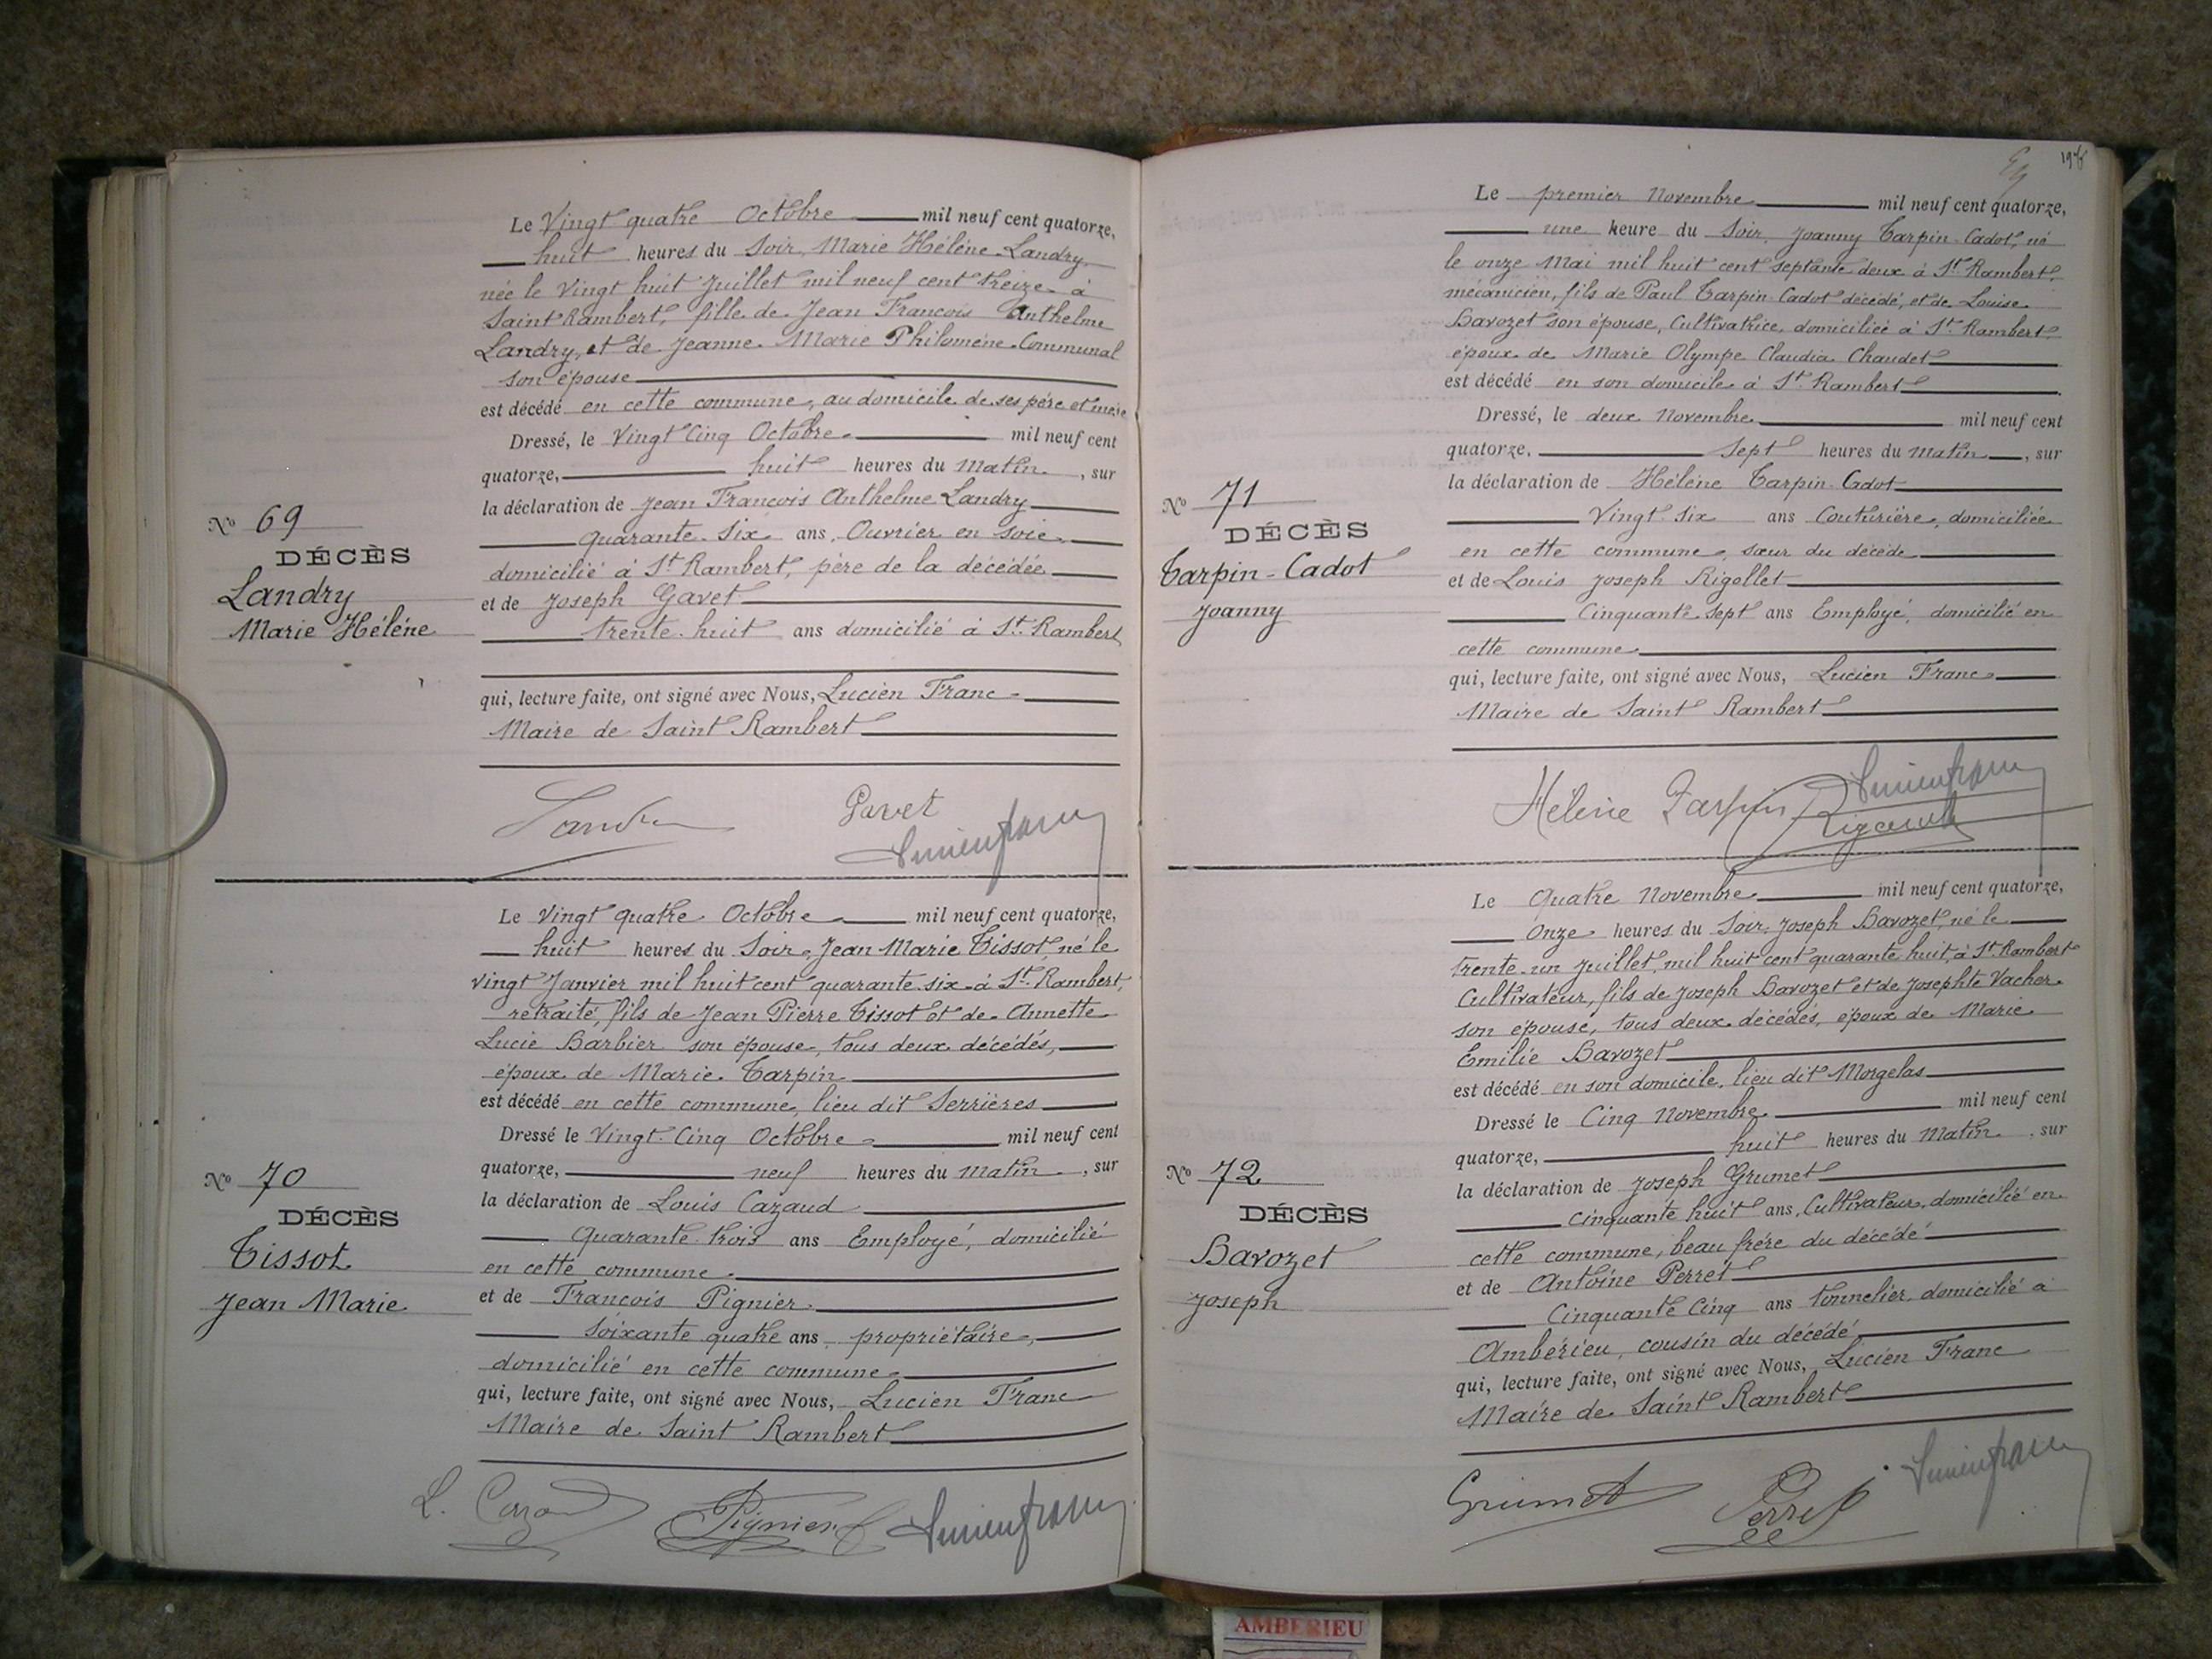 Le Vingt quatre Octobre mil neuf cent quatorze,
huit heures du Soir, Marie Hélène Landry
née le Vingt huit Juillet mil neuf cent treize à
Saint Rambert, fille de Jean François Anthelme
Landry, et de Jeanne Marie Philomène Communal
son épouse
est décédé en cette commune, au domicile de ses père et mère
Dressé, le Vingt Cinq Octobre mil neuf cent
quatorze, huit heures du Matin, sur
la déclaration de Jean François Anthelme Landry
quarante six ans, Ouvrier en soie
domicilié à St Rambert, père de la décédée
et de Joseph Gavet
trente huit ans domicilié à St. Rambert
qui, lecture faite, ont signé avec Nous, Lucien Franc
Maire de Saint Rambert
No 69
DÉCÈS
Landry
Marie Hélène
Gavet
Le Vingt quatre Octobre mil neuf cent quatorze,
huit heures du Soir, Jean Marie Tissot, né le
vingt Janvier mil huit cent quarante six à St. Rambert,
retraité, fils de Jean Pierre Tissot et de Annette
Lucie Barbier son épouse, tous deux décédés,
époux de Marie Tarpin
est décédé en cette commune, lieu dit Serrières
Dressé le Vingt Cinq Octobre mil neuf cent
quatorze, neuf heures du matin, sur
la déclaration de Louis Cazaud
Quarante trois ans Employé, domicilié
en cette commune
et de François Pignier
Soixante quatre ans propriétaire,
domicilié en cette commune
qui, lecture faite, ont signé avec Nous, Lucien Franc
Maire de Saint Rambert
No 70
DÉCÈS
Tissot
Jean Marie
Pignier
Le premier Novembre mil neuf cent quatorze,
une heure du Soir, Joanny Tarpin-Cadot, né
le onze Mai mil huit cent septante deux à St Rambert,
mécanicien, fils de Paul Tarpin-Cadot décédé, et de Louise
Bavozet son épouse, Cultivatrice, domiciliée à St. Rambert,
époux de Marie Olympe Claudia Chaudet
est décédé en son domicile à St. Rambert
Dressé, le deux Novembre mil neuf cent
quatorze, sept heures du matin, sur
la déclaration de Hélène Tarpin-Cadot
Vingt six ans Couturière, domiciliée
en cette commune, sœur du décédé
et de Louis Joseph Rigollet
Cinquante sept ans Employé, domicilié en
cette commune
qui, lecture faite, ont signé avec Nous, Lucien Franc
Maire de Saint Rambert
No 71
DÉCÈS
Tarpin-Cadot
Joanny
Hélène Tarpin
Le Quatre Novembre mil neuf cent quatorze,
Onze heures du Soir, Joseph Bavozet, né le
trente un Juillet, mil huit cent quarante huit, à St. Rambert
Cultivateur, fils de Joseph Bavozet et de Josephte Vacher
son épouse, tous deux décédés, époux de Marie
Emilie Bavozet
est décédé en son domicile, lieu dit Morgelas
Dressé le Cinq Novembre mil neuf cent
quatorze, huit heures du Matin, sur
la déclaration de Joseph Grumet
Cinquante huit ans, Cultivateur, domicilié en
cette commune, beau frère du décédé
et de Antoine Perret
Cinquante Cinq ans tonnelier, domicilié à
Ambérieu, cousin du décédé
qui, lecture faite, ont signé avec Nous, Lucien Franc
Maire de Saint Rambert
No 72
DÉCÈS
Bavozet
Joseph
Grumet
Perret
AMBERIEU